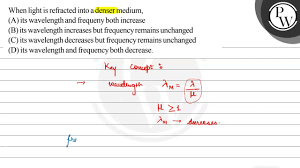 When light is refracted into a denser medium,
(A) its wavelength and frequeny both increase
(B) its wavelength increases but frequency remains unchanged
(C) its wavelength decreases but frequency remains unchanged
(D) its wavelength and frequency both decrease.
Key Concept :
→ wavelength λm = λ/μ
μ ≥ 1
λm → decreases.
fre